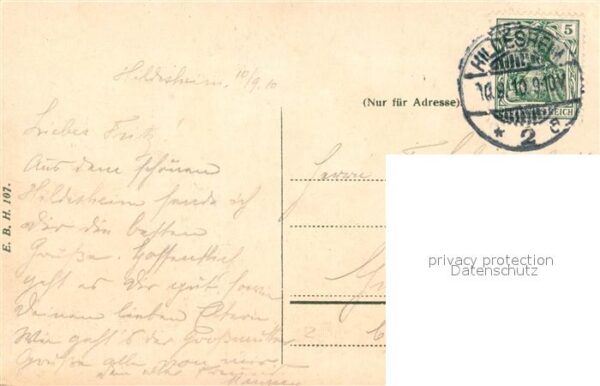 Hildesheim, 10/9.10
Liebes Fritz!
Aus dem schönen
Hildesheim sende ich
dir die besten
Grüße. Hoffentlich
geht es Dir gut, sowie
Deinen lieben Eltern
Wie geht's der Großmutter
Grüße alle von mir
(Nur für Adresse).
Herrn
5
HILDESHEIM
10.9.10.9-10V
* 2 c
REICH
E. B. H. 107.
privacy protection
Datenschutz